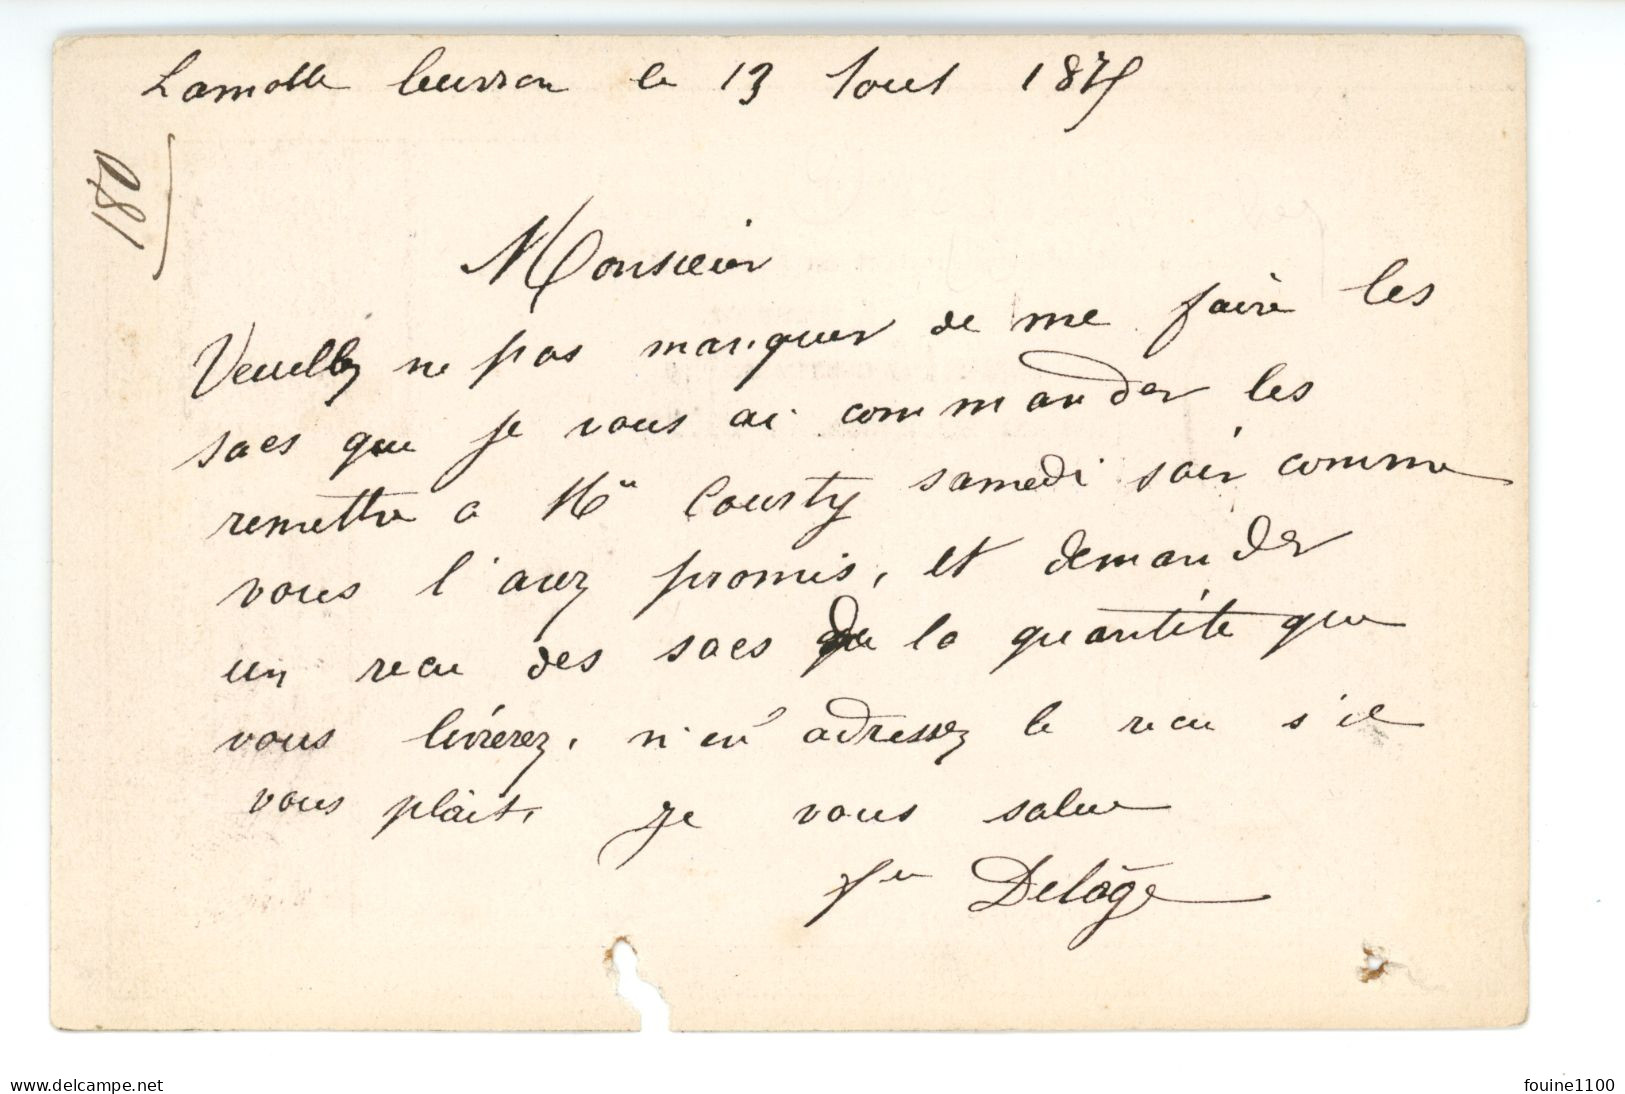 Lamotte beuvron le 13 Aout 1875
180
Monsieur
Veuillez ne pas manquer de me faire les
sacs que je vous ai commander les
remettre a Mr Courty samedi soir comme
vous l'avez promis, et demander
un recu des sacs de la quantité que
vous livrerez, m'en adressez le recu s'il
vous plait, Je vous salue
Delage
www.delcampe.net
fouine1100